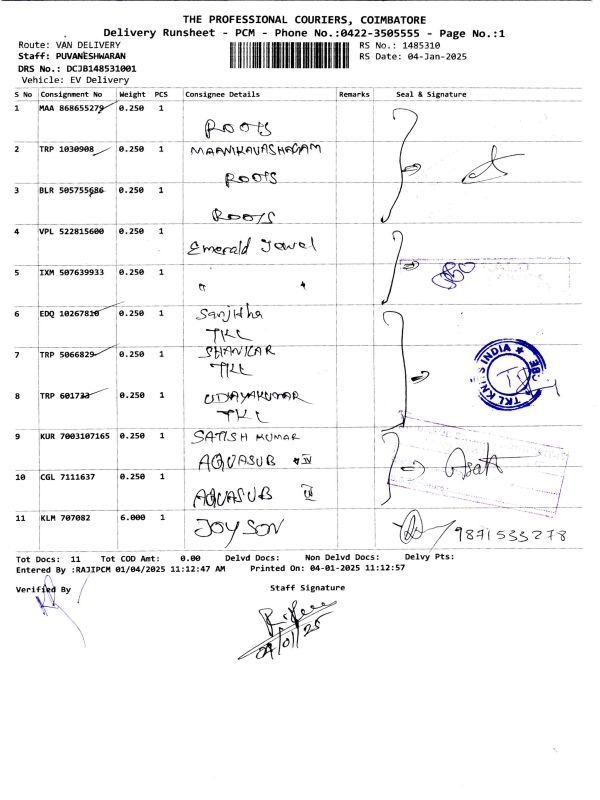 THE PROFESSIONAL COURIERS, COIMBATORE
Delivery Runsheet - PCM - Phone No.:0422-3505555 - Page No.:1
Route: VAN DELIVERY
RS No.: 1485310
Staff: PUVANESHWARAN
RS Date: 04-Jan-2025
DRS No.: DCJB148531001
Vehicle: EV Delivery
S No Consignment No Weight PCS Consignee Details Remarks Seal & Signature
1 MAA 868655279 0.250 1
ROOTS
2 TRP 1030908 0.250 1 MAANIKAVASHAGAM
ROOTS
3 BLR 505755686 0.250 1
ROOTS
4 VPL 522815600 0.250 1 Emerald Jewel
5 IXM 507639933 0.250 1 " "
6 EDQ 10267810 0.250 1 Sanjitha
TKL
7 TRP 5066829 0.250 1 SHANKAR
TKL
TKL KNITS INDIA ★ CBE
8 TRP 601733 0.250 1 UDAYAKUMAR
TKL
9 KUR 7003107165 0.250 1 SATISH KUMAR
AQUASUB IV
10 CGL 7111637 0.250 1
AQUASUB IV
11 KLM 707082 6.000 1 JOYSON
9871533278
Tot Docs: 11 Tot COD Amt: 0.00 Delvd Docs: Non Delvd Docs: Delvy Pts:
Entered By :RAJIPCM 01/04/2025 11:12:47 AM Printed On: 04-01-2025 11:12:57
Verified By
Staff Signature
04/01/25